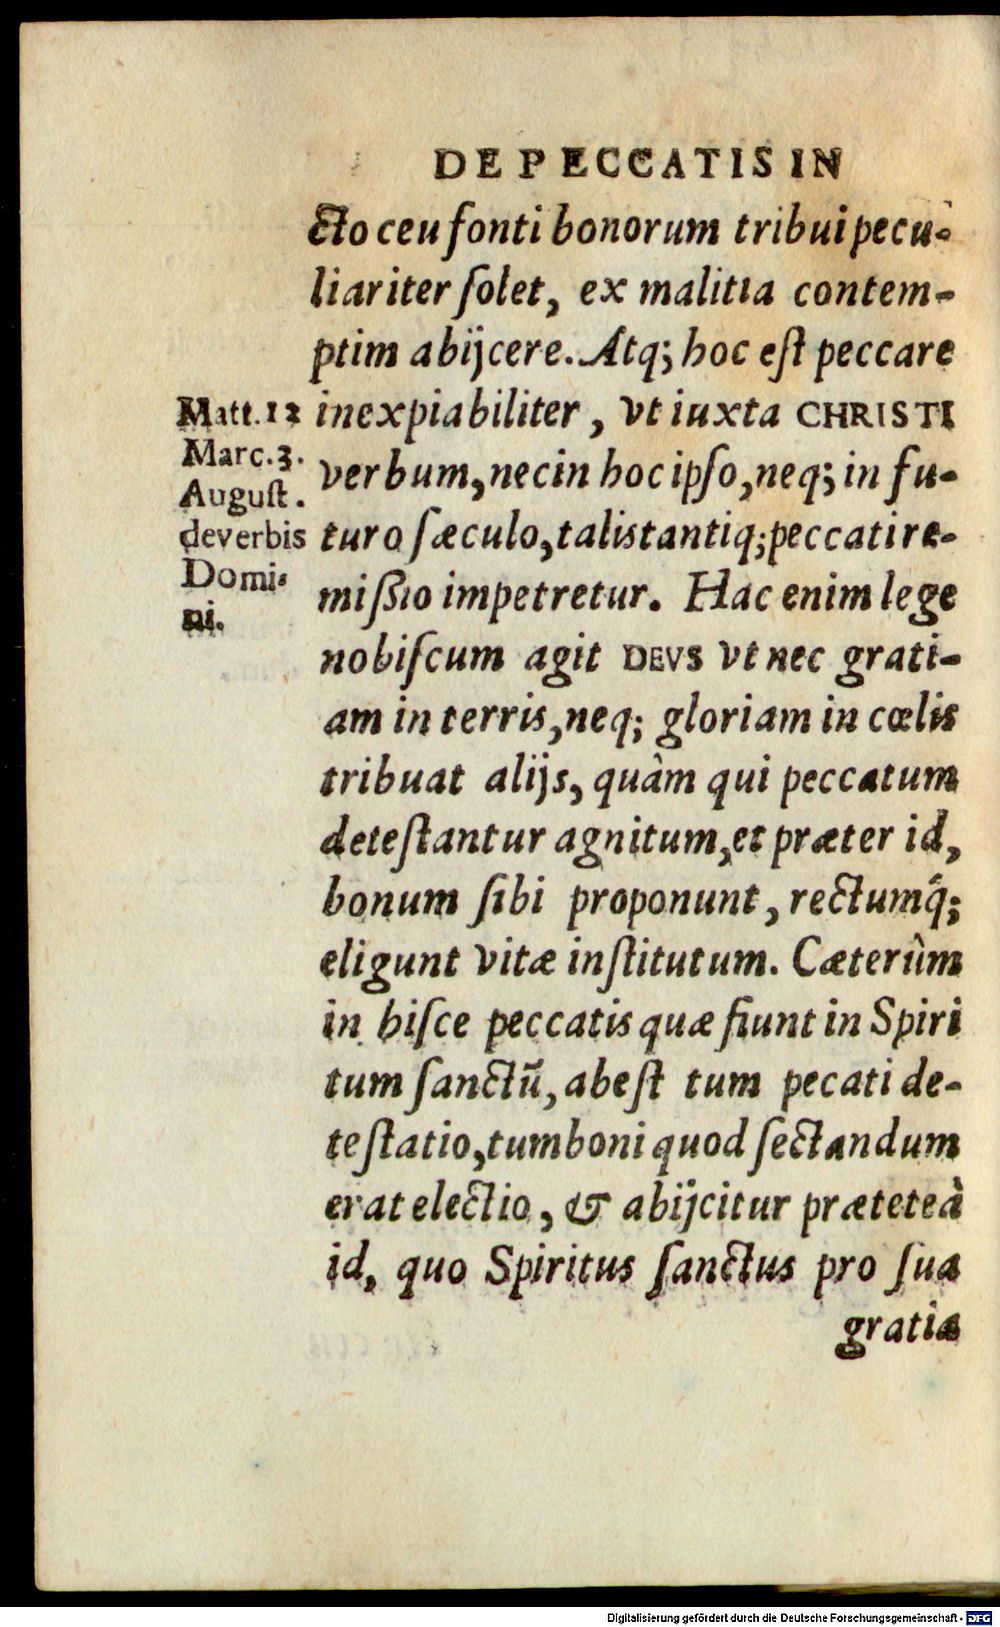 DE PECCATIS IN
cto ceu fonti bonorum tribui pecu-
liariter ſolet, ex malitia contem-
ptim abijcere. Atq; hoc eſt peccare
inexpiabiliter, vt iuxta CHRISTI
verbum, nec in hoc ipſo, neq; in fu-
turo ſæculo, talis tantiq; peccati re-
miſsio impetretur. Hac enim lege
nobiſcum agit DEVS vt nec grati-
am in terris, neq; gloriam in cœlis
tribuat alijs, quâm qui peccatum
deteſtantur agnitum, et præter id,
bonum ſibi proponunt, rectumq́;
eligunt vitæ inſtitutum. Cæterûm
in hiſce peccatis quæ fiunt in Spiri
tum ſanctũ, abeſt tum pecati de-
teſtatio, tum boni quod ſectandum
erat electio, & abijcitur præteteà
id, quo Spiritus ſanctus pro ſua
gratia
Matt. 12
Marc. 3.
Auguſt.
de verbis
Domi-
ni.
Digitalisierung gefördert durch die Deutsche Forschungsgemeinschaft - DFG